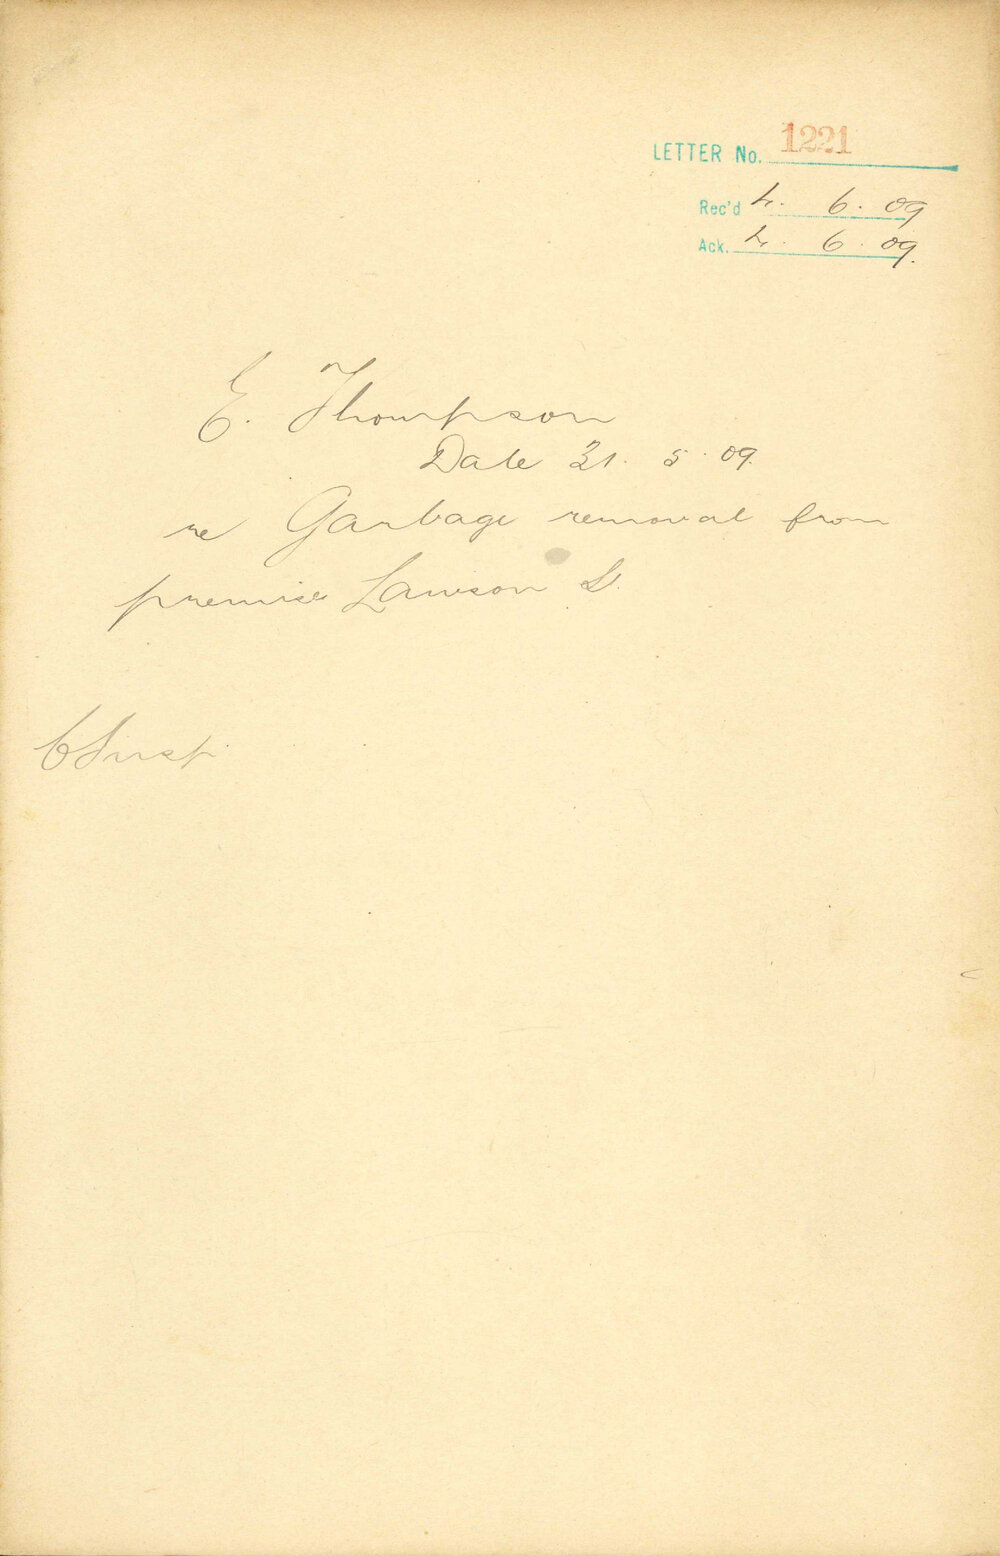 LETTER No. 1221
Rec'd 4. 6. 09
Ack. 4. 6. 09.
E. Thompson
Date 31. 5. 09.
re Garbage removal from
premises Lawson St.